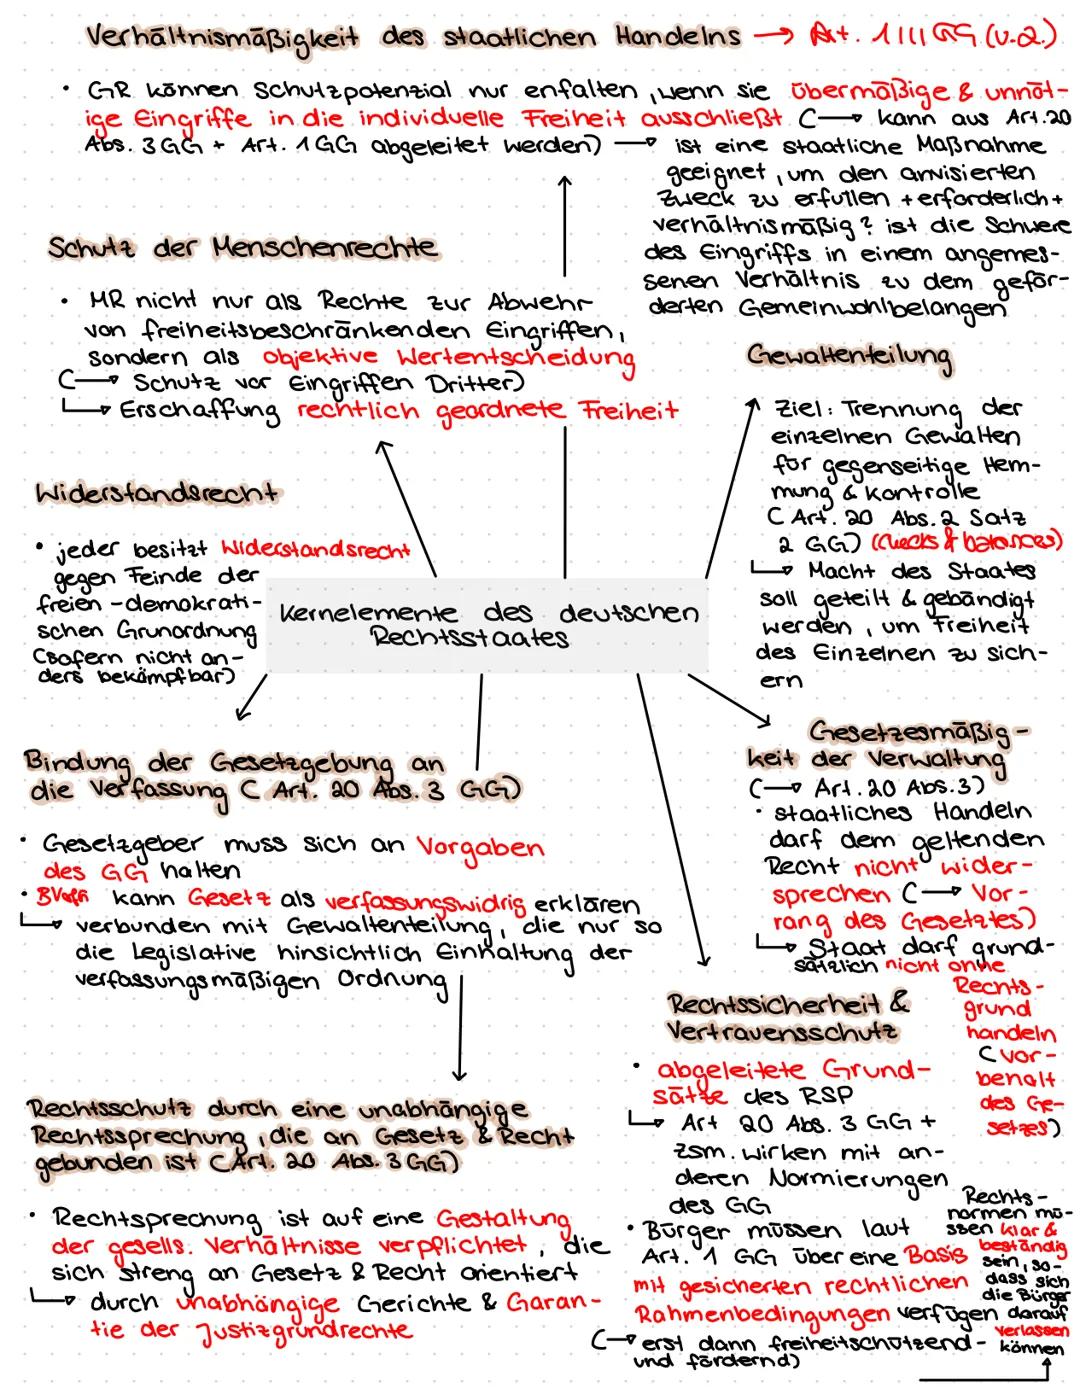 Verhältnismäßigkeit des staatlichen Handelns → Art. 1 III GG (v.a.)
• GR können Schutzpotenzial nur enfalten, wenn sie übermäßige & unnöt-
ige Eingriffe in die individuelle Freiheit ausschließt (→ kann aus Art.20
Abs. 3 GG + Art. 1 GG abgeleitet werden) → ist eine staatliche Maßnahme
geeignet, um den anvisierten
Zweck zu erfüllen + erforderlich +
verhältnismäßig? ist die Schwere
des Eingriffs in einem angemes-
senen Verhältnis zu dem geför-
derten Gemeinwohlbelangen
Schutz der Menschenrechte
• MR nicht nur als Rechte zur Abwehr
von freiheitsbeschränkenden Eingriffen,
sondern als objektive Wertentscheidung
(→ Schutz vor Eingriffen Dritter)
↳ Erschaffung rechtlich geordnete Freiheit
Gewaltenteilung
Ziel: Trennung der
einzelnen Gewalten
für gegenseitige Hem-
mung & Kontrolle
(Art. 20 Abs. 2 Satz
2 GG) (checks & balances)
↳ Macht des Staates
soll geteilt & gebändigt
werden, um Freiheit
des Einzelnen zu sich-
ern
Widerstandsrecht
• jeder besitzt Widerstandsrecht
gegen Feinde der
freien-demokrati-
schen Grunordnung
(sofern nicht an-
ders bekämpfbar)
Kernelemente des deutschen
Rechtsstaates
Bindung der Gesetzgebung an
die Verfassung (Art. 20 Abs. 3 GG)
• Gesetzgeber muss sich an Vorgaben
des GG halten
• BVerfG kann Gesetz als verfassungswidrig erklären
↳ verbunden mit Gewaltenteilung, die nur so
die Legislative hinsichtlich Einhaltung der
verfassungsmäßigen Ordnung
Gesetzesmäßig-
keit der Verwaltung
(→ Art. 20 Abs. 3)
• staatliches Handeln
darf dem geltenden
Recht nicht wider-
sprechen (→ Vor-
rang des Gesetztes)
↳ Staat darf grund-
sätzlich nicht ohne
Rechts-
grund
handeln
(vor-
behalt
des Ge-
setzes)
Rechtssicherheit &
Vertrauensschutz
• abgeleitete Grund-
sätze des RSP
↳ Art 20 Abs. 3 GG +
zsm. wirken mit an-
deren Normierungen
des GG
• Bürger müssen laut
Art. 1 GG über eine Basis
mit gesicherten rechtlichen
Rahmenbedingungen verfügen
(→ erst dann freiheitschützend-
und fördernd)
Rechts-
normen mü-
ssen klar &
beständig
sein, so-
dass sich
die Bürger
darauf
verlassen
können
Rechtsschutz durch eine unabhängige
Rechtssprechung, die an Gesetz & Recht
gebunden ist (Art. 20 Abs. 3 GG)
• Rechtsprechung ist auf eine Gestaltung
der gesells. Verhältnisse verpflichtet, die
sich streng an Gesetz & Recht orientiert
↳ durch unabhängige Gerichte & Garan-
tie der Justizgrundrechte